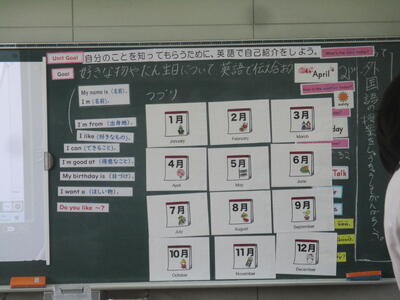 Unit Goal 自分のことを知ってもらうために、英語で自己紹介をしよう。
Goal 好きな物やたん生日について 英語で伝え
April
My name is (名前).
I'm (名前).
つづり
I'm from (出身地).
I like (好きなもの).
I can (できること).
I'm good at (得意なこと).
My birthday is (日づけ).
I want a (ほしい物).
Do you like ~?
1月 2月 3月
January February March
4月 5月 6月
April May June
7月 8月 9月
July August September
10月 11月 12月
October November December
sunny
day
Talk
外国語の授業をしよう